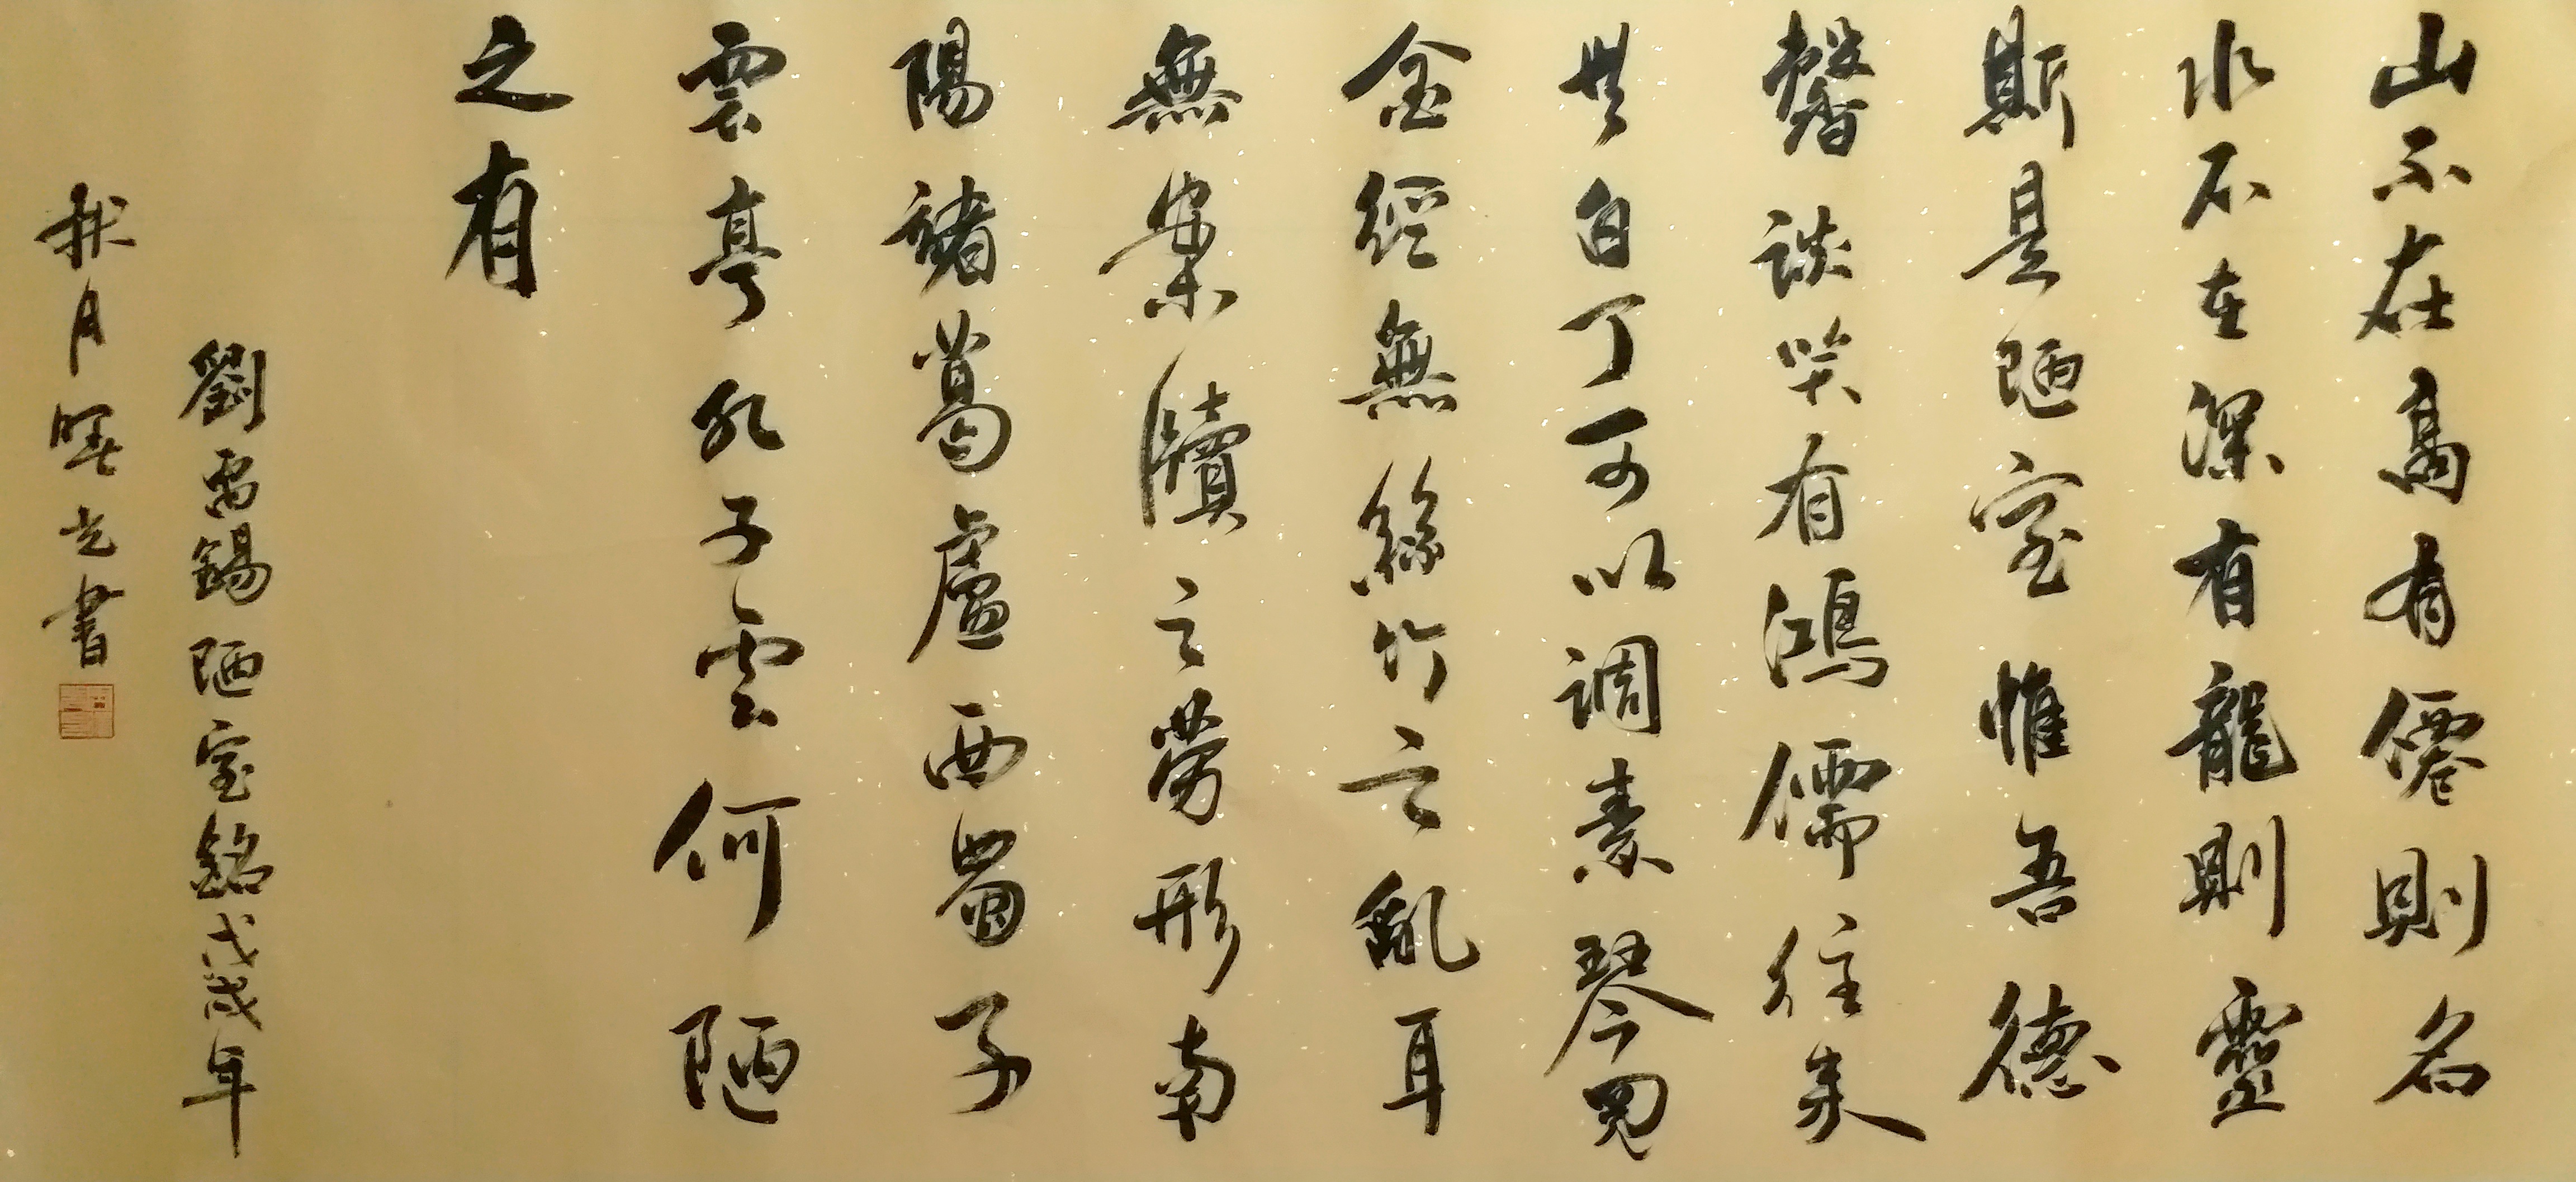 山不在高有僊則名
水不在深有龍則靈
斯是陋室惟吾德
馨談笑有鴻儒往來
無白丁可以調素琴閱
金經無絲竹之亂耳
無案牘之勞形南
陽諸葛廬西蜀子
雲亭孔子雲何陋
之有
劉禹錫陋室銘戊戌年
秋月曙光書